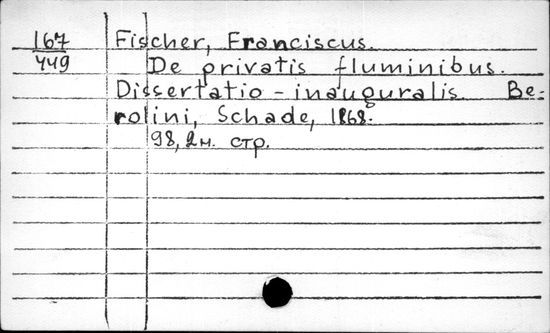 167 Fischer, Franciscus.
449 De privatis fluminibus.
Dissertatio - inauguralis. Be-
rolini, Schade, 1868.
98, 2 н. стр.